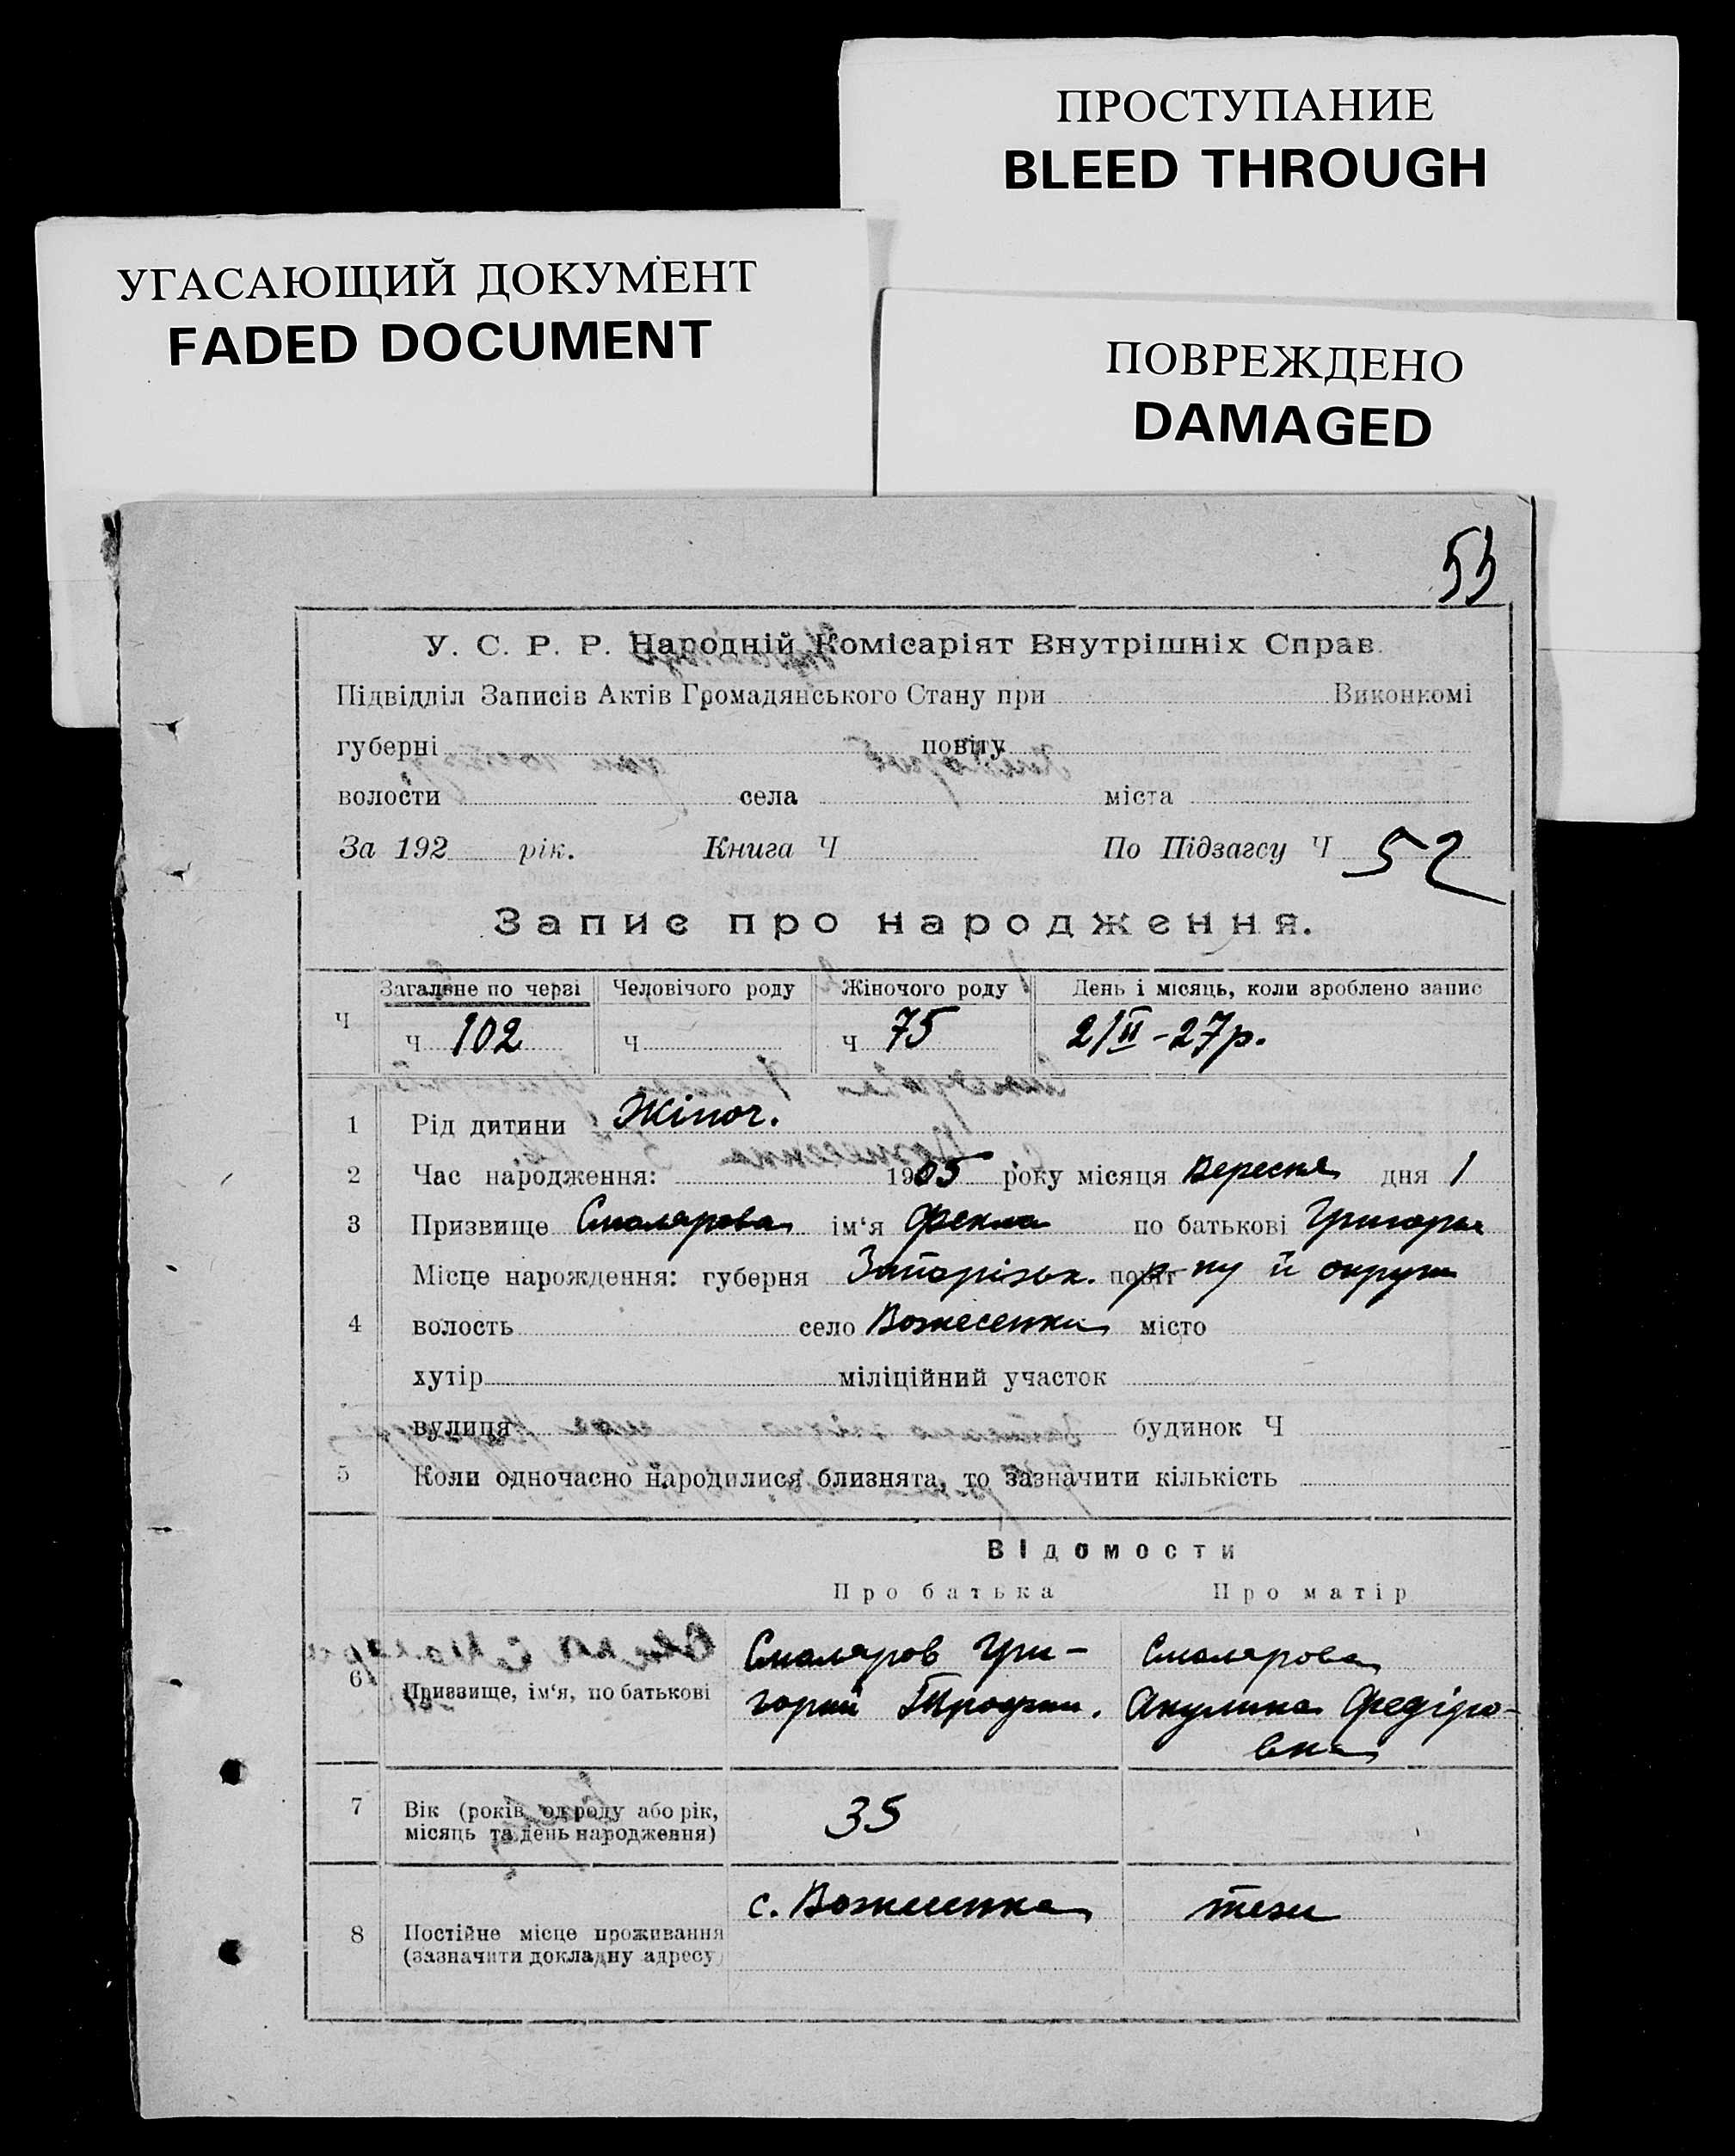 ПРОСТУПАНИЕ
BLEED THROUGH
УГАСАЮЩИЙ ДОКУМЕНТ
FADED DOCUMENT
ПОВРЕЖДЕНО
DAMAGED
53
У. С. Р. Р. Народній Комісаріят Внутрішніх Справ.
Підвідділ Записів Актів Громадянського Стану при Виконкомі
губерні повіту
волости села міста
За 192 рік. Книга Ч По Підзагсу Ч 52
Запис про народження.
Ч Загальне по черзі Человічого роду Жіночого роду День і місяць, коли зроблено запис
Ч 102 Ч Ч 75 2/II-27р.
1 Рід дитини Жіноч.
2 Час народження: 1905 року місяця Вересня дня 1
3 Призвище Смолярова ім‘я Фекла по батькові Григорьв
Місце нарождення: губерня Запорізьк. повіт р-ну й округи
4 волость село Вознесенки місто
хутір міліційний участок
вулиця будинок Ч
5 Коли одночасно народилися близнята, то зазначити кількість
Відомости
Про батька Про матір
6 Призвище, ім‘я, по батькові
Смоляров Гри-
горий Трофим.
Смолярова
Акулина Федіро-
вна
7 Вік (років од роду або рік,
місяць та день народження)
35
8 Постійне місце проживання
(зазначити докладну адресу)
с. Вознесенка
тежи